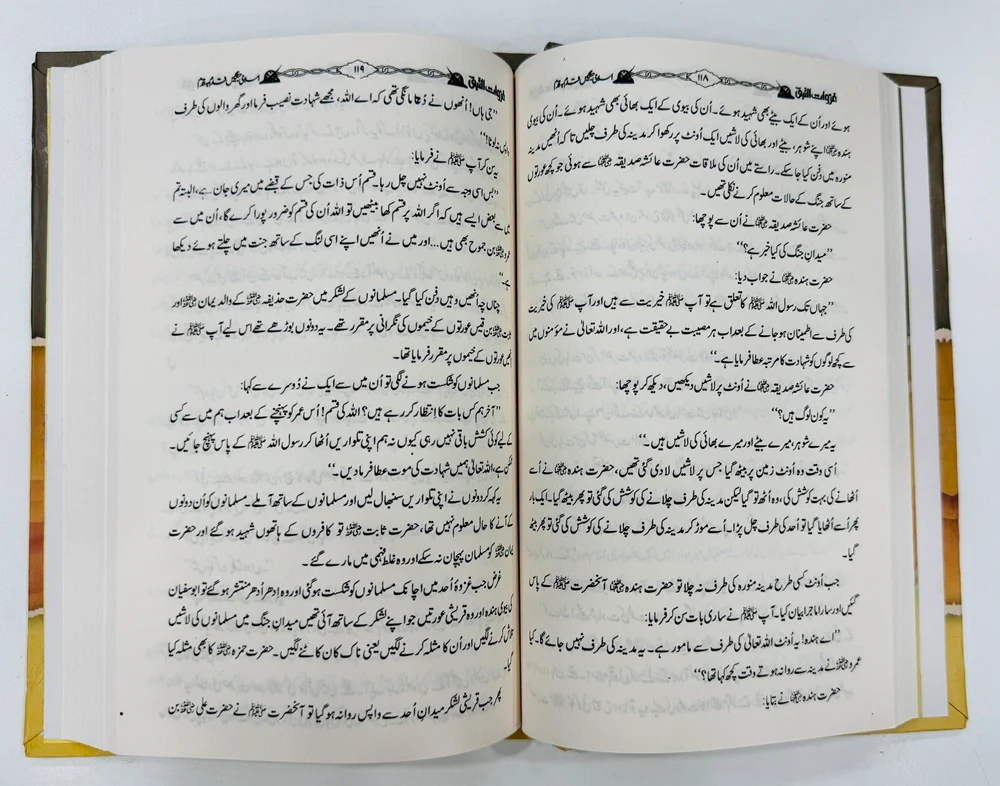 غزوات النبی ﷺ
۱۱۸
اسلامی جنگیں قدم بہ قدم
ہوئے اور اُن کے ایک بیٹے بھی شہید ہوئے۔ اُن کی بیوی کے ایک بھائی بھی شہید ہوئے۔ اُن کی بیوی
ہندہ ؓ اپنے شوہر، بیٹے اور بھائی کی لاشیں ایک اُونٹ پر رکھوا کر مدینہ کی طرف چلیں تاکہ اُنھیں مدینہ
منورہ میں دفن کیا جا سکے۔ راستے میں اُن کی ملاقات حضرت عائشہ صدیقہ ؓ سے ہوئی جو کچھ عورتوں
کے ساتھ جنگ کے حالات معلوم کرنے نکلی تھیں۔
حضرت عائشہ صدیقہ ؓ نے اُن سے پوچھا:
”میدانِ جنگ کی کیا خبر ہے؟“
حضرت ہندہ ؓ نے جواب دیا:
”جہاں تک رسول اللہ ﷺ کا تعلق ہے تو آپ ﷺ خیریت سے ہیں اور آپ ﷺ کی خیریت
کی طرف سے اطمینان ہو جانے کے بعد اب ہر مصیبت بے حقیقت ہے، اور اللہ تعالیٰ نے مؤمنوں میں
سے کچھ لوگوں کو شہادت کا مرتبہ عطا فرمایا ہے۔“
حضرت عائشہ صدیقہ ؓ نے اُونٹ پر لاشیں دیکھیں، دیکھ کر پوچھا:
”یہ کون لوگ ہیں؟“
یہ میرے شوہر، میرے بیٹے اور میرے بھائی کی لاشیں ہیں۔“
اُسی وقت وہ اُونٹ زمین پر بیٹھ گیا جس پر لاشیں لادی گئی تھیں، حضرت ہندہ ؓ نے اُسے
اُٹھانے کی بہت کوشش کی، وہ اُٹھ تو گیا لیکن مدینہ کی طرف چلانے کی کوشش کی گئی تو پھر بیٹھ گیا۔ ایک بار
پھر اُسے اُٹھایا گیا تو اُحد کی طرف چل پڑا۔ اُسے موڑ کر مدینہ کی طرف چلانے کی کوشش کی گئی تو پھر بیٹھ
گیا۔
جب اُونٹ کسی طرح مدینہ منورہ کی طرف نہ چلا تو حضرت ہندہ ؓ آنحضرت ﷺ کے پاس
گئیں اور سارا ماجرا بیان کیا۔ آپ ﷺ نے ساری بات سن کر فرمایا:
”اے ہندہ! یہ اُونٹ اللہ تعالیٰ کی طرف سے مامور ہے۔ یہ مدینہ کی طرف نہیں جائے گا۔ کیا
عمرو ؓ نے مدینہ سے روانہ ہوتے وقت کچھ کہا تھا؟“
حضرت ہندہ ؓ نے بتایا:
غزوات النبی ﷺ
۱۱۹
اسلامی جنگیں قدم بہ قدم
”جی ہاں! اُنھوں نے دُعا مانگی تھی کہ اے اللہ، مجھے شہادت نصیب فرما اور گھر والوں کی طرف
نہ لوٹا!“
یہ سن کر آپ ﷺ نے فرمایا:
”بس اسی وجہ سے اُونٹ نہیں چل رہا۔ قسم اُس ذات کی جس کے قبضے میں میری جان ہے، البتہ تم
بعض ایسے ہیں کہ اگر اللہ پر قسم کھا بیٹھیں تو اللہ اُن کی قسم کو ضرور پورا کرے گا، اُن میں سے
بن جموح بھی ہیں... اور میں نے اُنھیں اپنے اسی لنگ کے ساتھ جنت میں چلتے ہوئے دیکھا
”
چناں چہ اُنھیں وہیں دفن کیا گیا۔ مسلمانوں کے لشکر میں حضرت حذیفہ ؓ کے والد یمان ؓ اور
بن قیس عورتوں کے خیموں کی نگرانی پر مقرر تھے۔ یہ دونوں بوڑھے تھے اس لیے آپ ﷺ نے
عورتوں کے خیموں پر مقرر فرمایا تھا۔
جب مسلمانوں کو شکست ہونے لگی تو اُن میں سے ایک نے دُوسرے سے کہا:
”آخر ہم کس بات کا انتظار کر رہے ہیں؟ اللہ کی قسم! اُس عمر کو پہنچنے کے بعد اب ہم میں سے کسی
کے لیے کوئی کشش باقی نہیں رہی کیوں نہ ہم اپنی تلواریں اُٹھا کر رسول اللہ ﷺ کے پاس پہنچ جائیں۔
ہے، اللہ تعالیٰ ہمیں شہادت کی موت عطا فرما دیں۔“
یہ کہہ کر دونوں نے اپنی تلواریں سنبھال لیں اور مسلمانوں کے ساتھ آ ملے۔ مسلمانوں کو اُن دونوں
کے آنے کا حال معلوم نہیں تھا، حضرت ثابت ؓ تو کافروں کے ہاتھوں شہید ہو گئے اور حضرت
یمان ؓ کو مسلمان پہچان نہ سکے اور وہ غلط فہمی میں مارے گئے۔
غرض جب غزوۂ اُحد میں اچانک مسلمانوں کو شکست ہو گئی اور وہ اِدھر اُدھر منتشر ہو گئے تو ابو سفیان
کی بیوی ہندہ اور وہ قریشی عورتیں جو اپنے لشکر کے ساتھ آئی تھیں میدانِ جنگ میں مسلمانوں کی لاشیں
تلاش کرنے لگیں اور اُن کا مثلہ کرنے لگیں یعنی ناک کان کاٹنے لگیں۔ حضرت حمزہ ؓ کا بھی مثلہ کیا
گیا۔
پھر جب قریشی لشکر میدانِ اُحد سے واپس روانہ ہو گیا تو آنحضرت ﷺ نے حضرت علی ؓ بن